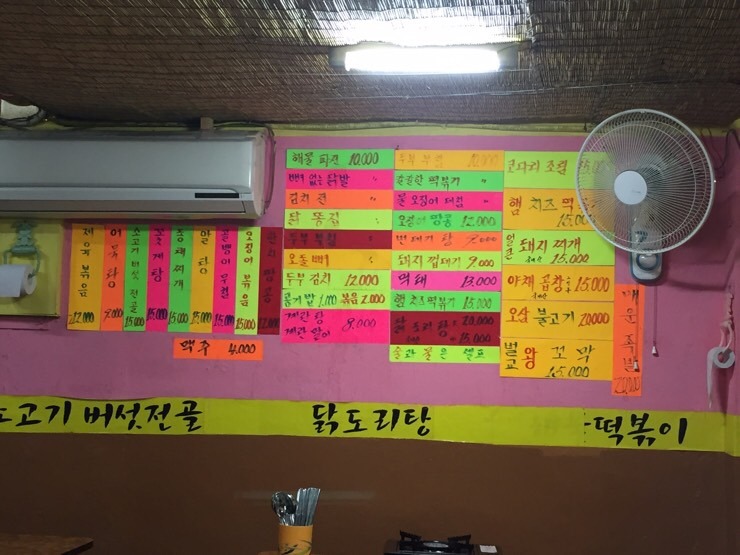 제육볶음 12,000
어묵탕 7,000
소고기버섯전골 15,000
꽃게탕 15,000
동태찌개 15,000
알탕 15,000
골뱅이무침 15,000
오징어볶음 15,000
맥주 4,000
해물 파전 10,000
뼈 없는 닭발 〃
김치 전 〃
닭 똥집 〃
오돌 뼈 〃
두부 김치 12,000
공기밥 1,000 볶음 2,000
계란 탕
계란 말이 8,000
10,000
떡볶기 〃
물 오징어 데침 〃
오징어 땅콩 12,000
번데기 탕 7,000
돼지 껍데기 9,000
먹태 13,000
햄 치즈떡볶기 15,000
닭 도리탕
술과 물은 셀프
코다리 조림
햄 치즈
15,000
돼지 찌개
15,000
야채 곱창 15,000
오삼 불고기 20,000
벌교 왕 꼬막
15,000
매운족발
20,000
소고기 버섯전골
닭도리탕
떡볶이